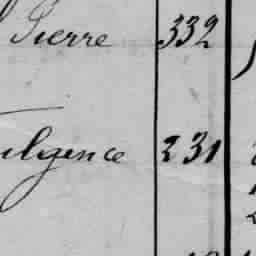 Pierre 332
ulgence 231